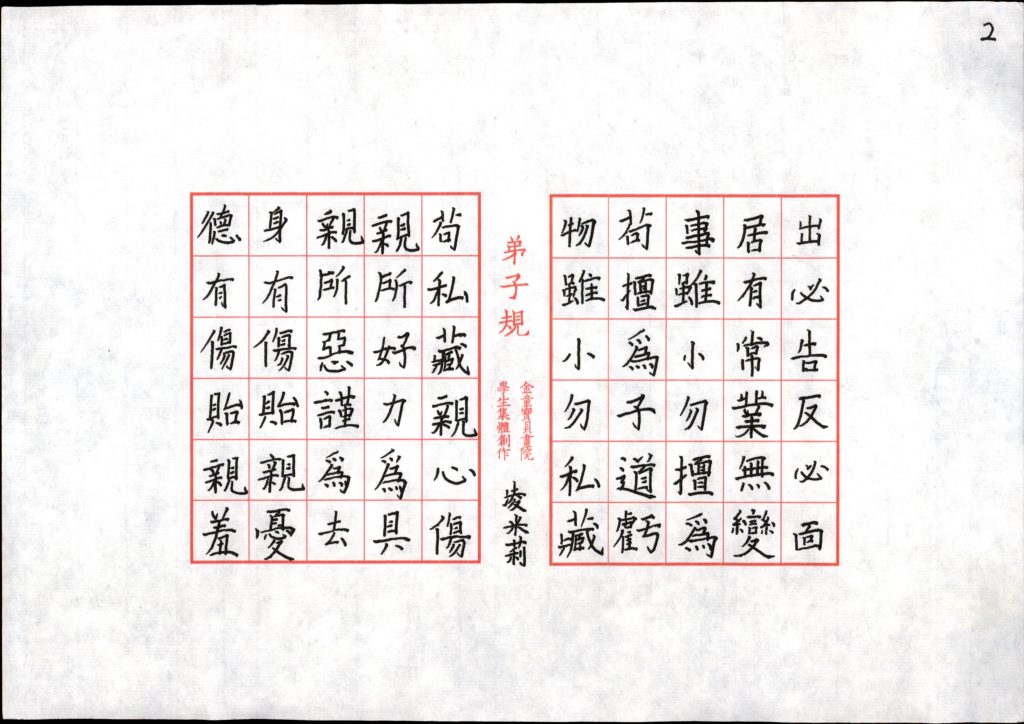 2
出必告反必面
居有常業無變
事雖小勿擅爲
苟擅爲子道虧
物雖小勿私藏
弟子規
金童寶貝畫院
學生集體創作
米莉
苟私藏親心傷
親所好力爲具
親所惡謹爲去
身有傷貽親憂
德有傷貽親羞